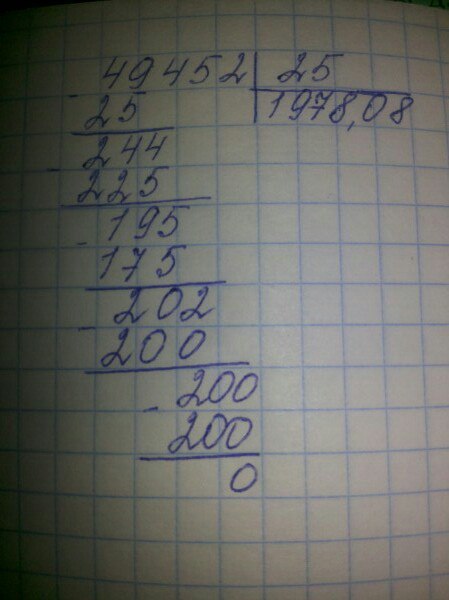 49452 | 25
- 25 | 1978,08
244
- 225
195
- 175
202
- 200
200
- 200
0